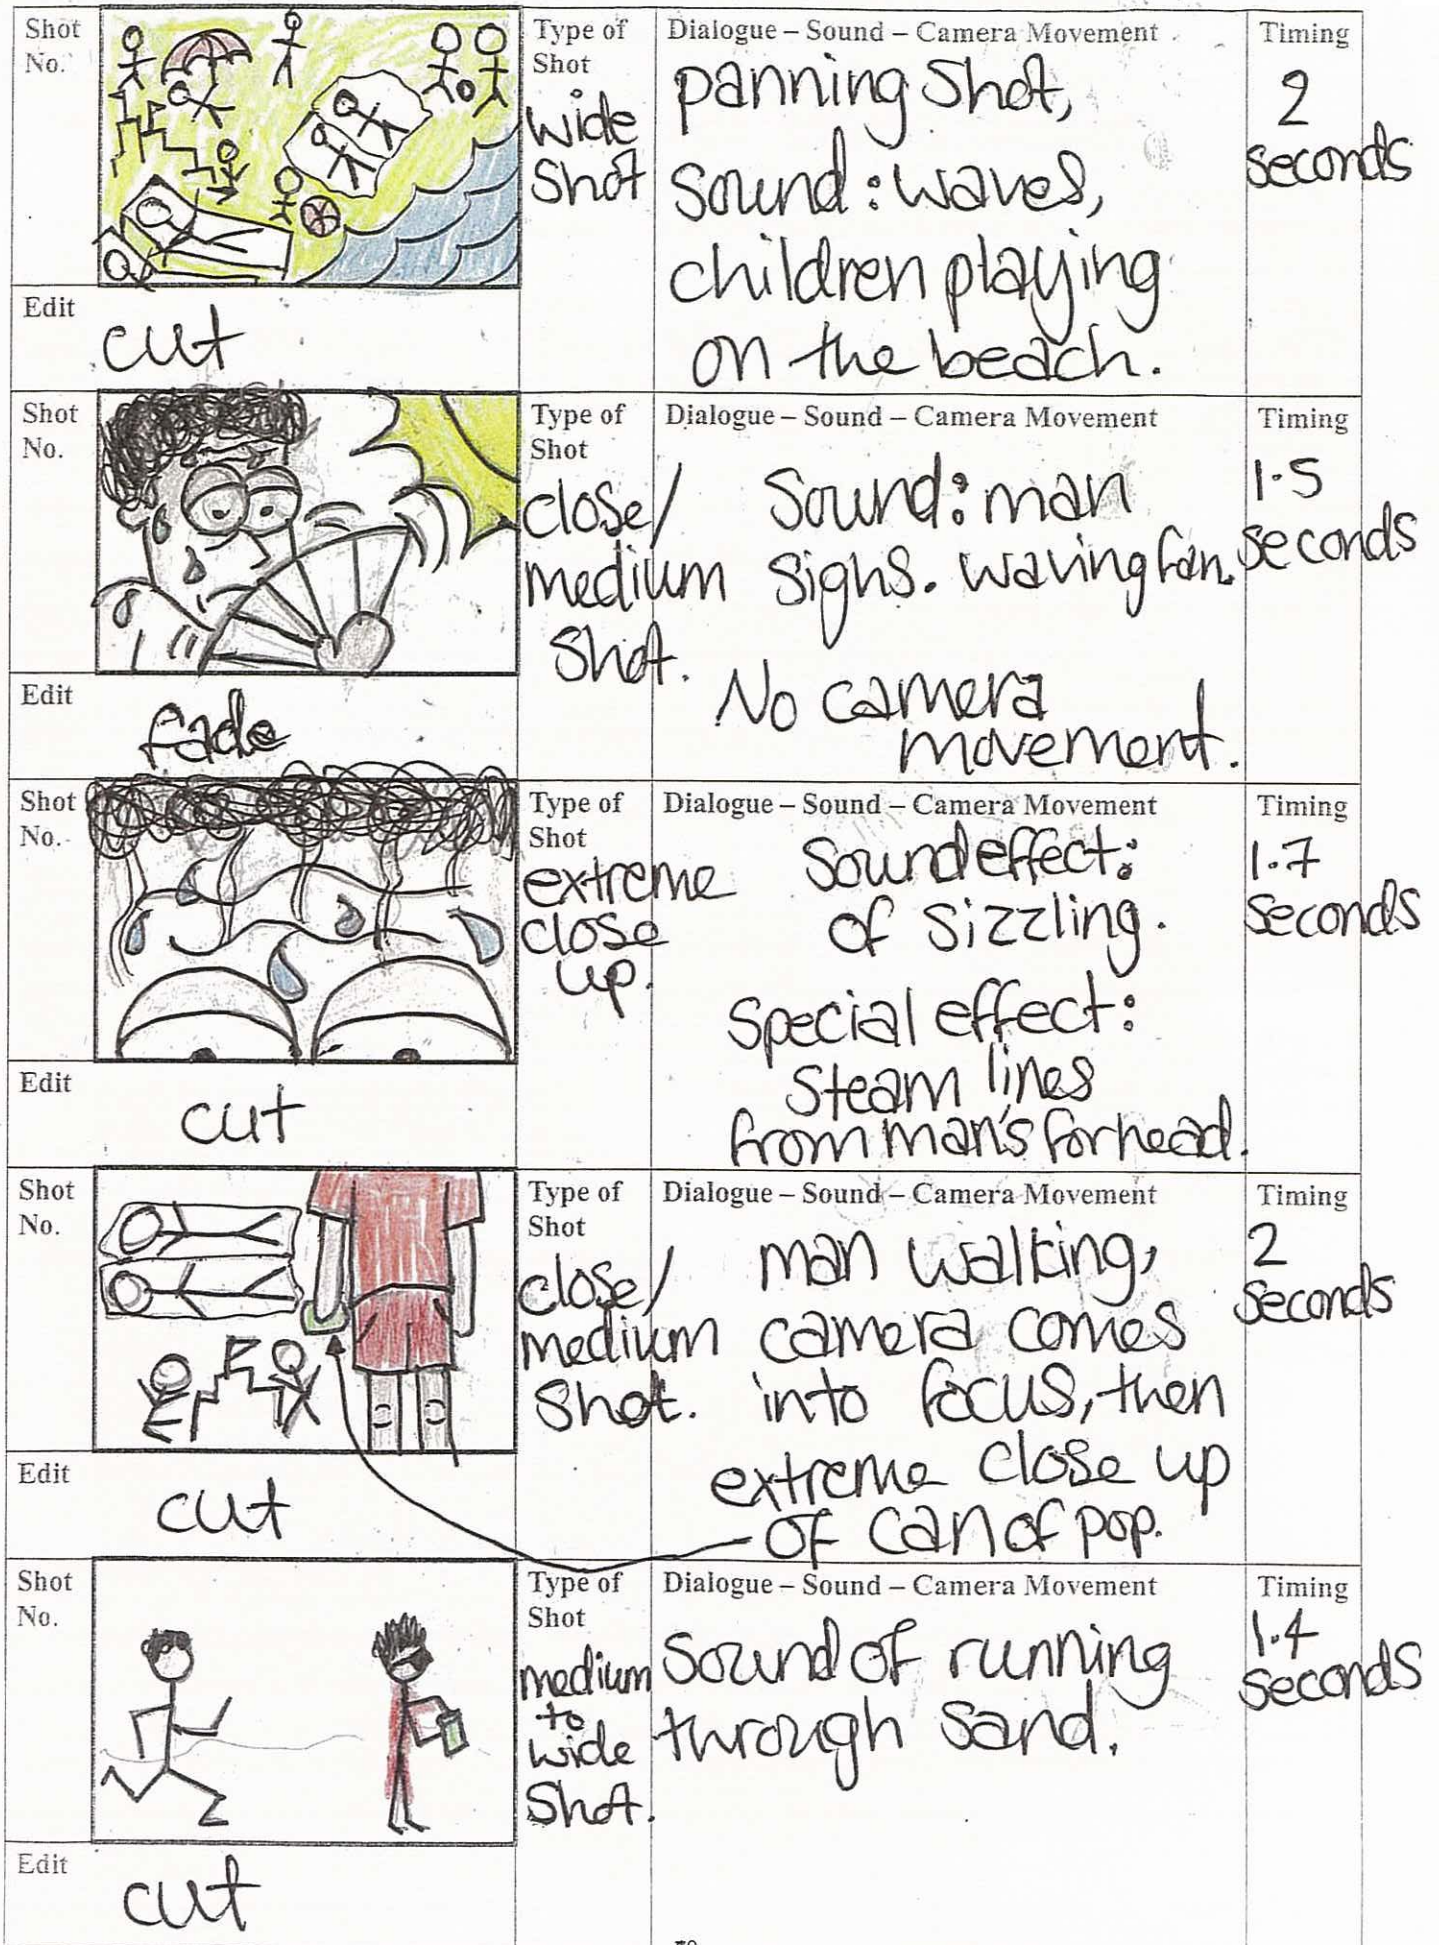 Shot
No.
Type of
Shot
wide
shot
Dialogue – Sound – Camera Movement
panning shot,
sound: waves,
children playing
on the beach.
Timing
2
seconds
Edit
cut
Shot
No.
Type of
Shot
close/
medium
shot.
Dialogue – Sound – Camera Movement
Sound: man
sighs. waving fan.
No camera
movement.
Timing
1.5
seconds
Edit
fade
Shot
No.
Type of
Shot
extreme
close
up.
Dialogue – Sound – Camera Movement
Sound effect:
of sizzling.
special effect:
steam lines
from man's forhead.
Timing
1.7
seconds
Edit
cut
Shot
No.
Type of
Shot
close/
medium
shot.
Dialogue – Sound – Camera Movement
man walking,
camera comes
into focus, then
extreme close up
of can of pop.
Timing
2
seconds
Edit
cut
Shot
No.
Type of
Shot
medium
to
wide
shot.
Dialogue – Sound – Camera Movement
Sound of running
through sand.
Timing
1.4
seconds
Edit
cut